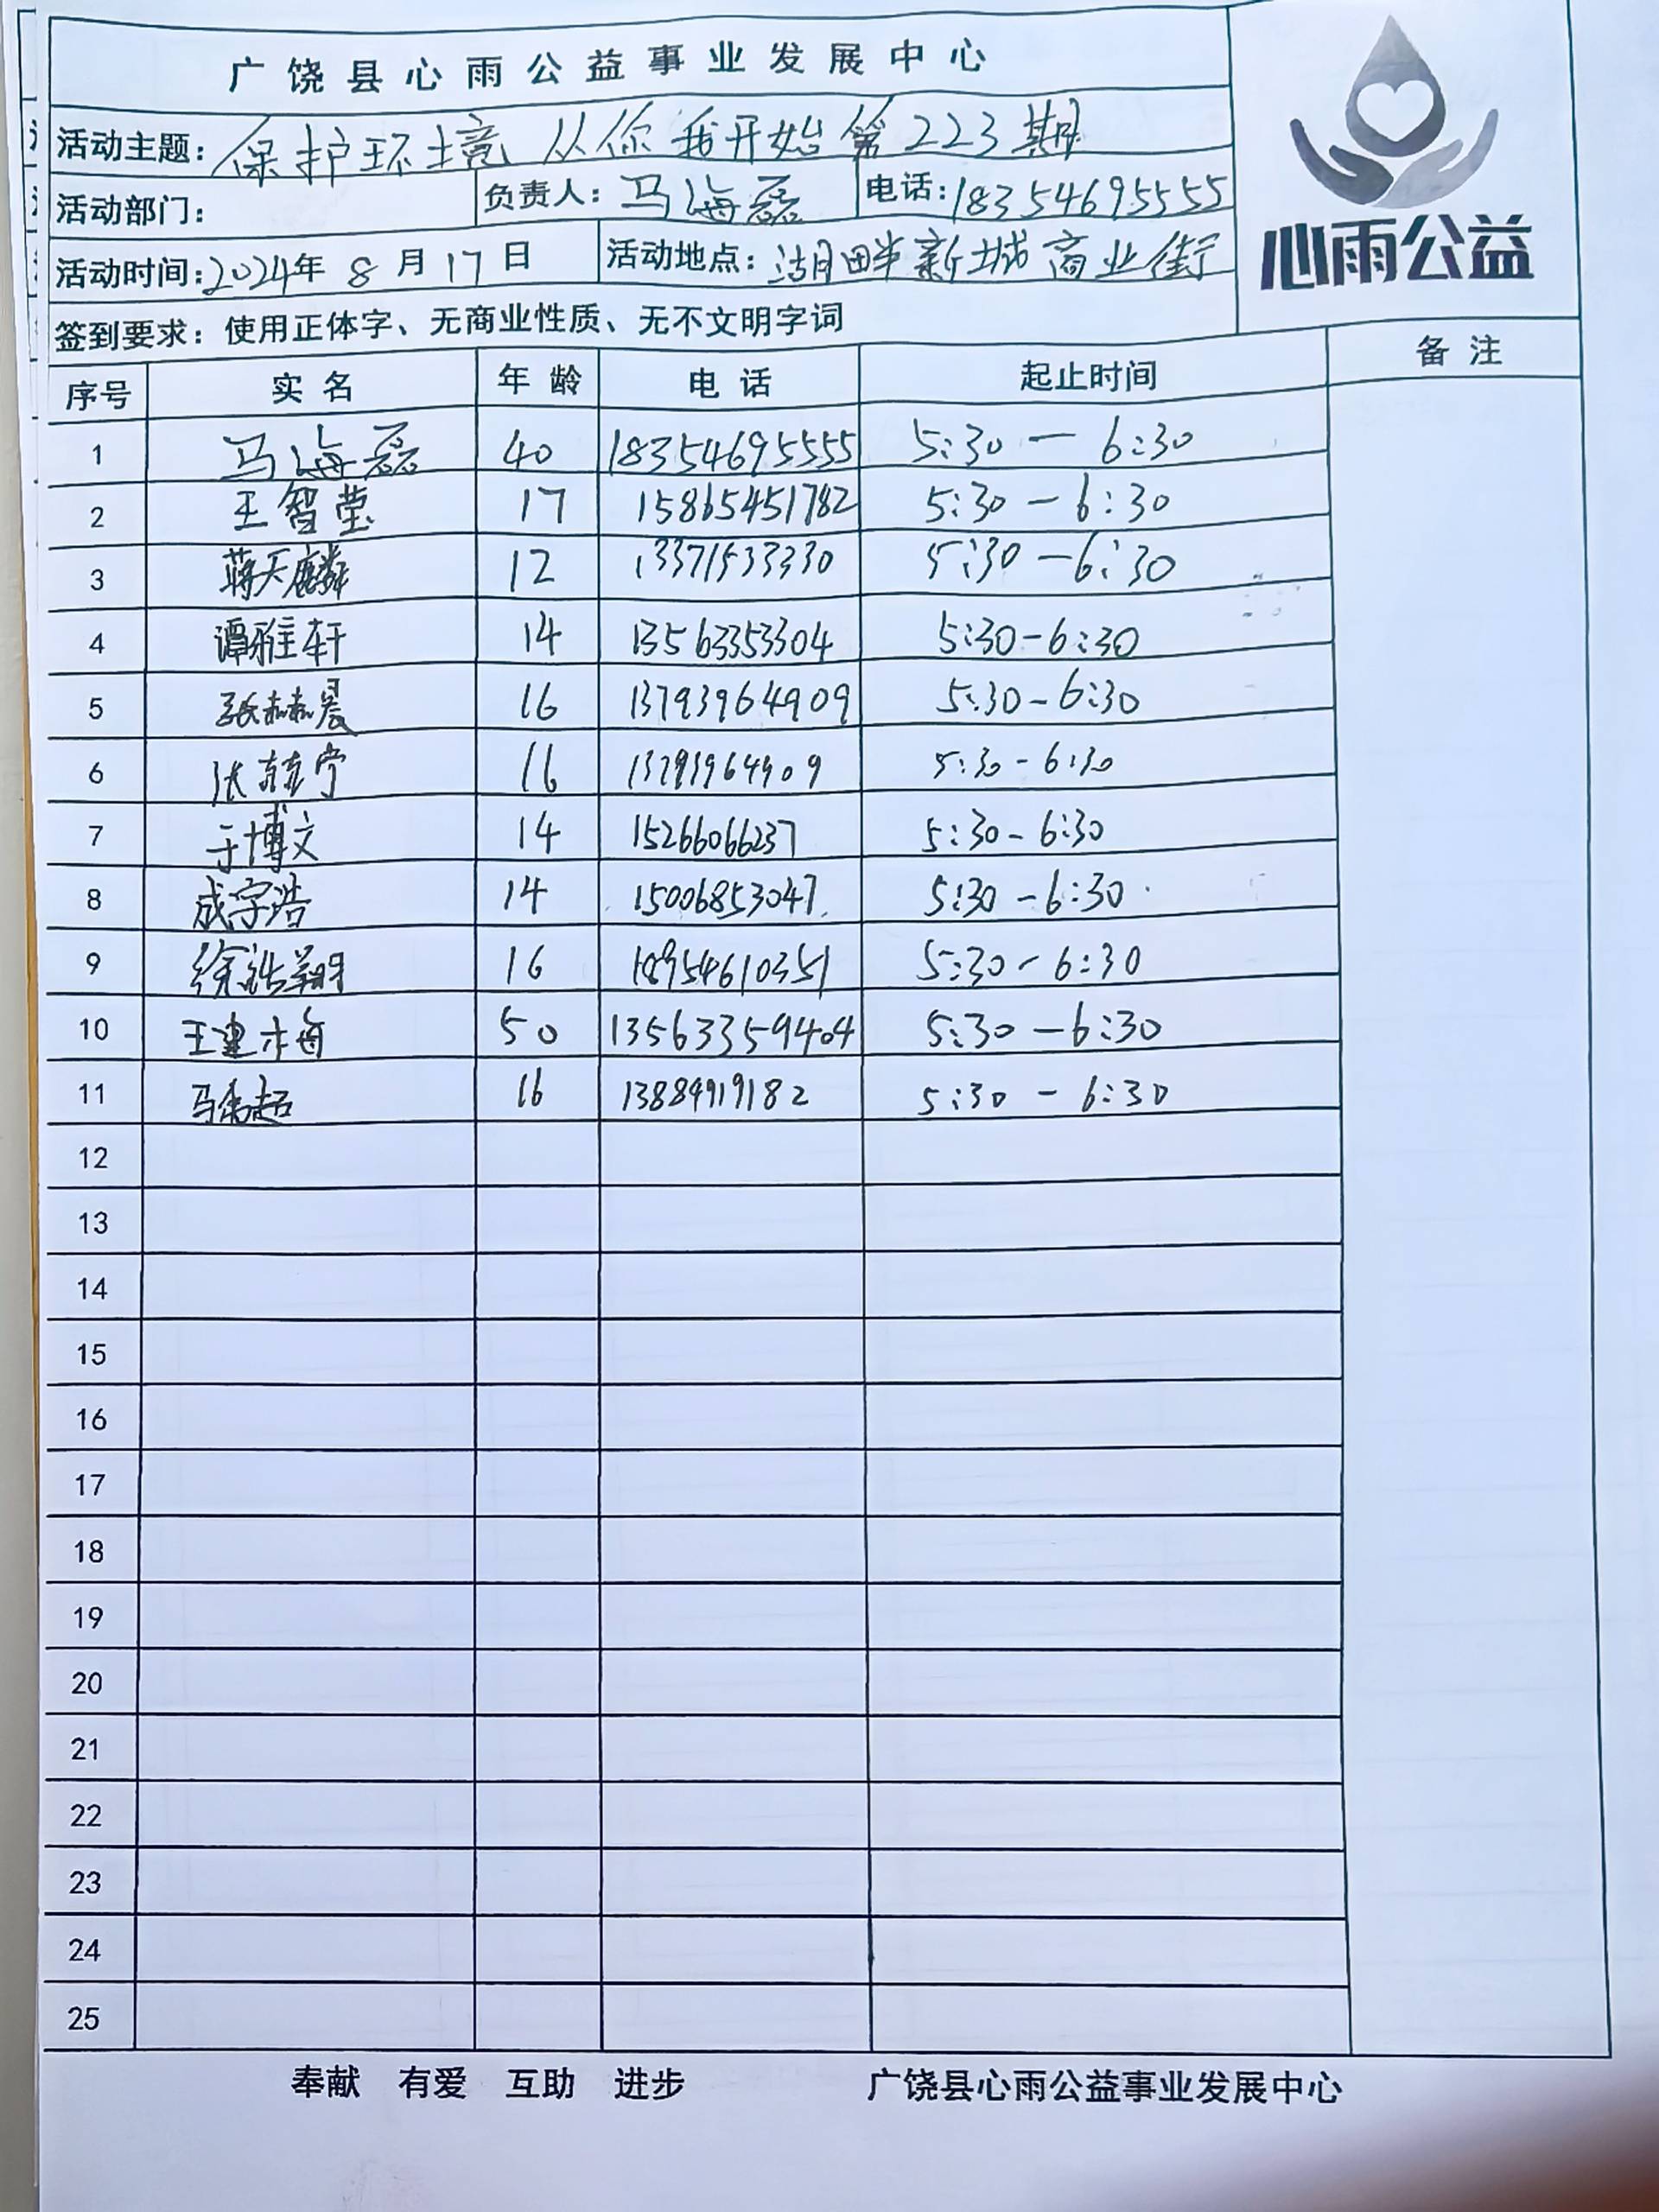 广饶县心雨公益事业发展中心
活动主题：保护环境 从你我开始第223期
活动部门： 负责人：马海磊 电话：18354695555
活动时间：2024年8月17日 活动地点：湖畔新城商业街
心雨公益
签到要求：使用正体字、无商业性质、无不文明字词
序号 实名 年龄 电话 起止时间 备注
1 马海磊 40 18354695555 5:30—6:30
2 王智莹 17 15865451782 5:30—6:30
3 蒋天麟 12 13371533330 5:30—6:30
4 谭雅轩 14 13563353304 5:30-6:30
5 张赫晨 16 13793964909 5:30-6:30
6 张赫宁 16 13793964909 5:30-6:30
7 于博文 14 15266066237 5:30-6:30
8 成宇浩 14 15006853047 5:30-6:30
9 徐浩翔 16 18954610351 5:30-6:30
10 王建梅 50 13563359404 5:30—6:30
11 马超 16 13884919182 5:30-6:30
12
13
14
15
16
17
18
19
20
21
22
23
24
25
奉献 有爱 互助 进步 广饶县心雨公益事业发展中心